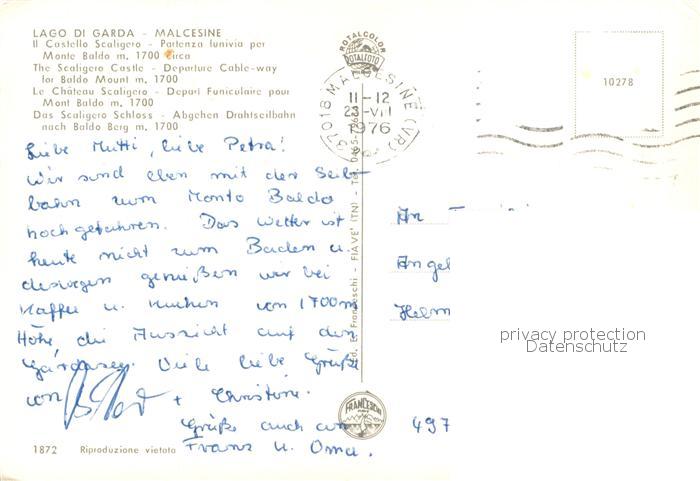 LAGO DI GARDA - MALCESINE
Il Castello Scaligero - Partenza funivia per
Monte Baldo m. 1700 circa
The Scaligero Castle - Departure Cable-way
for Baldo Mount m. 1700
Le Château Scaligero - Depart Funiculaire pour
Mont Baldo m. 1700
Das Scaligero Schloss - Abgehen Drahtseilbahn
nach Baldo Berg m. 1700
ROTALCOLOR
ROTALFOTO
37018 MALCESINE (VR)
11-12
23-VII
1976
10278
Liebe Mutti, liebe Petra!
Wir sind eben mit der Seil-
bahn zum Monto Baldo
hochgefahren. Das Wetter ist
heute nicht zum Baden u.
deswegen genießen wir bei
Kaffee u. Kuchen von 1700m
Höhe die Aussicht auf den
Gardasee. Viele liebe Grüße
von + Christine.
Grüße auch an
Franz u. Oma.
Ed. E. Franceschi - FIAVE' (TN) - Tel. 0465
An
Angel
Helm
497
privacy protection
Datenschutz
FRANCESCHI
1872 Riproduzione vietata